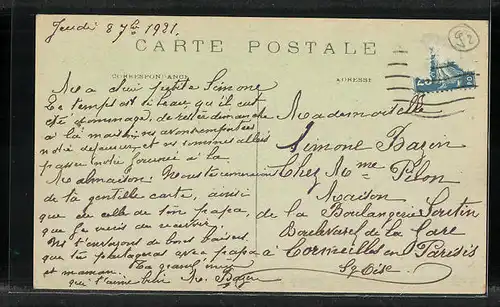 Jeudi 8 7bre 1921.
52
CARTE POSTALE
CORRESPONDANCE
ADRESSE
Ma petite Simone
Le temps est si beau, qu'il eut
été dommage, de rester dimanche
à la maison, avons emporté
notre déjeuner et nous sommes allés
passer notre journée à la
Malmaison. Nous te remercions
de ta gentille carte, ainsi
que de celle de ton papa,
que je viens de recevoir.
Nous t'envoyons de bons baisers
que tu partageras avec papa
et maman. Ta grand'mère
qui t'aime bien M. Bazin
Mademoiselle
Simone Bazin
Chez Mme Pelon
Maison
de la Boulangerie
Boulevard de la Gare
à Cormeilles en Parisis
S et Oise